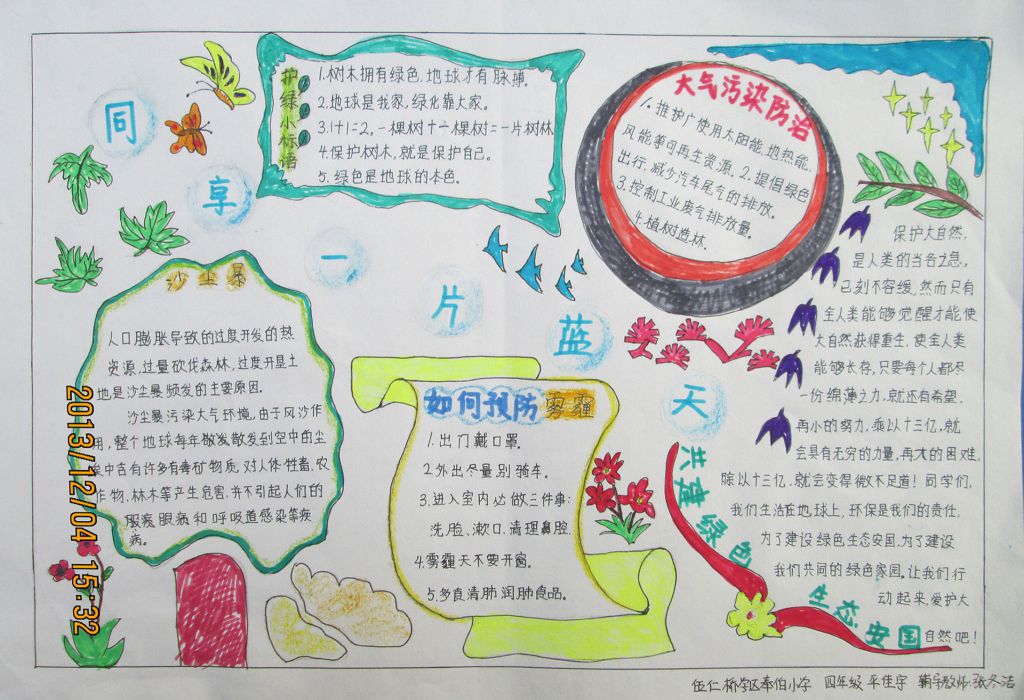 同享一片蓝天
护绿小标语
1.树木拥有绿色,地球才有脉搏。
2.地球是我家,绿化靠大家。
3.1+1=2,一棵树十一棵树=一片树林
4.保护树木,就是保护自己。
5.绿色是地球的本色。
大气污染防治
1.推护广使用太阳能,地热能.
风能等可再生资源。2.提倡绿色
出行,减少汽车尾气的排放。
3.控制工业废气排放量。
4.植树造林.
沙尘暴
人口膨胀导致的过度开发的热
资源,过量砍伐森林,过度开垦土
地是沙尘暴频发的主要原因.
沙尘暴污染大气环境,由于风沙作
用,整个地球每年散发到空中的尘
埃中含有许多有毒矿物质,对人体、牲畜、农
作物、林木等产生危害,并不引起人们的
眼疾眼病和呼吸道感染等疾
病。
如何预防雾霾
1.出门戴口罩。
2.外出尽量别骑车.
3.进入室内必做三件事:
洗脸、漱口、清理鼻腔
4.雾霾天不要开窗.
5.多食清肺润肺食品。
保护大自然,
是人类的当务之急,
已刻不容缓,然而只有
全人类能够觉醒才能使
大自然获得重生,使全人类
能够长存,只要每个人都尽
一份绵薄之力,就还有希望.
再小的努力,乘以十三亿,就
会具有无穷的力量,再大的困难,
除以十三亿,就会变得微不足道!同学们,
我们生活在地球上,环保是我们的责任,
为了建设绿色生态安国,为了建设
我们共同的绿色家园,让我们行
动起来,爱护大
自然吧!
共建绿色生态安国
伍仁桥学区奉伯小学 四年级 平佳宇 辅导教师:张冬洁
2013/12/04 15:32